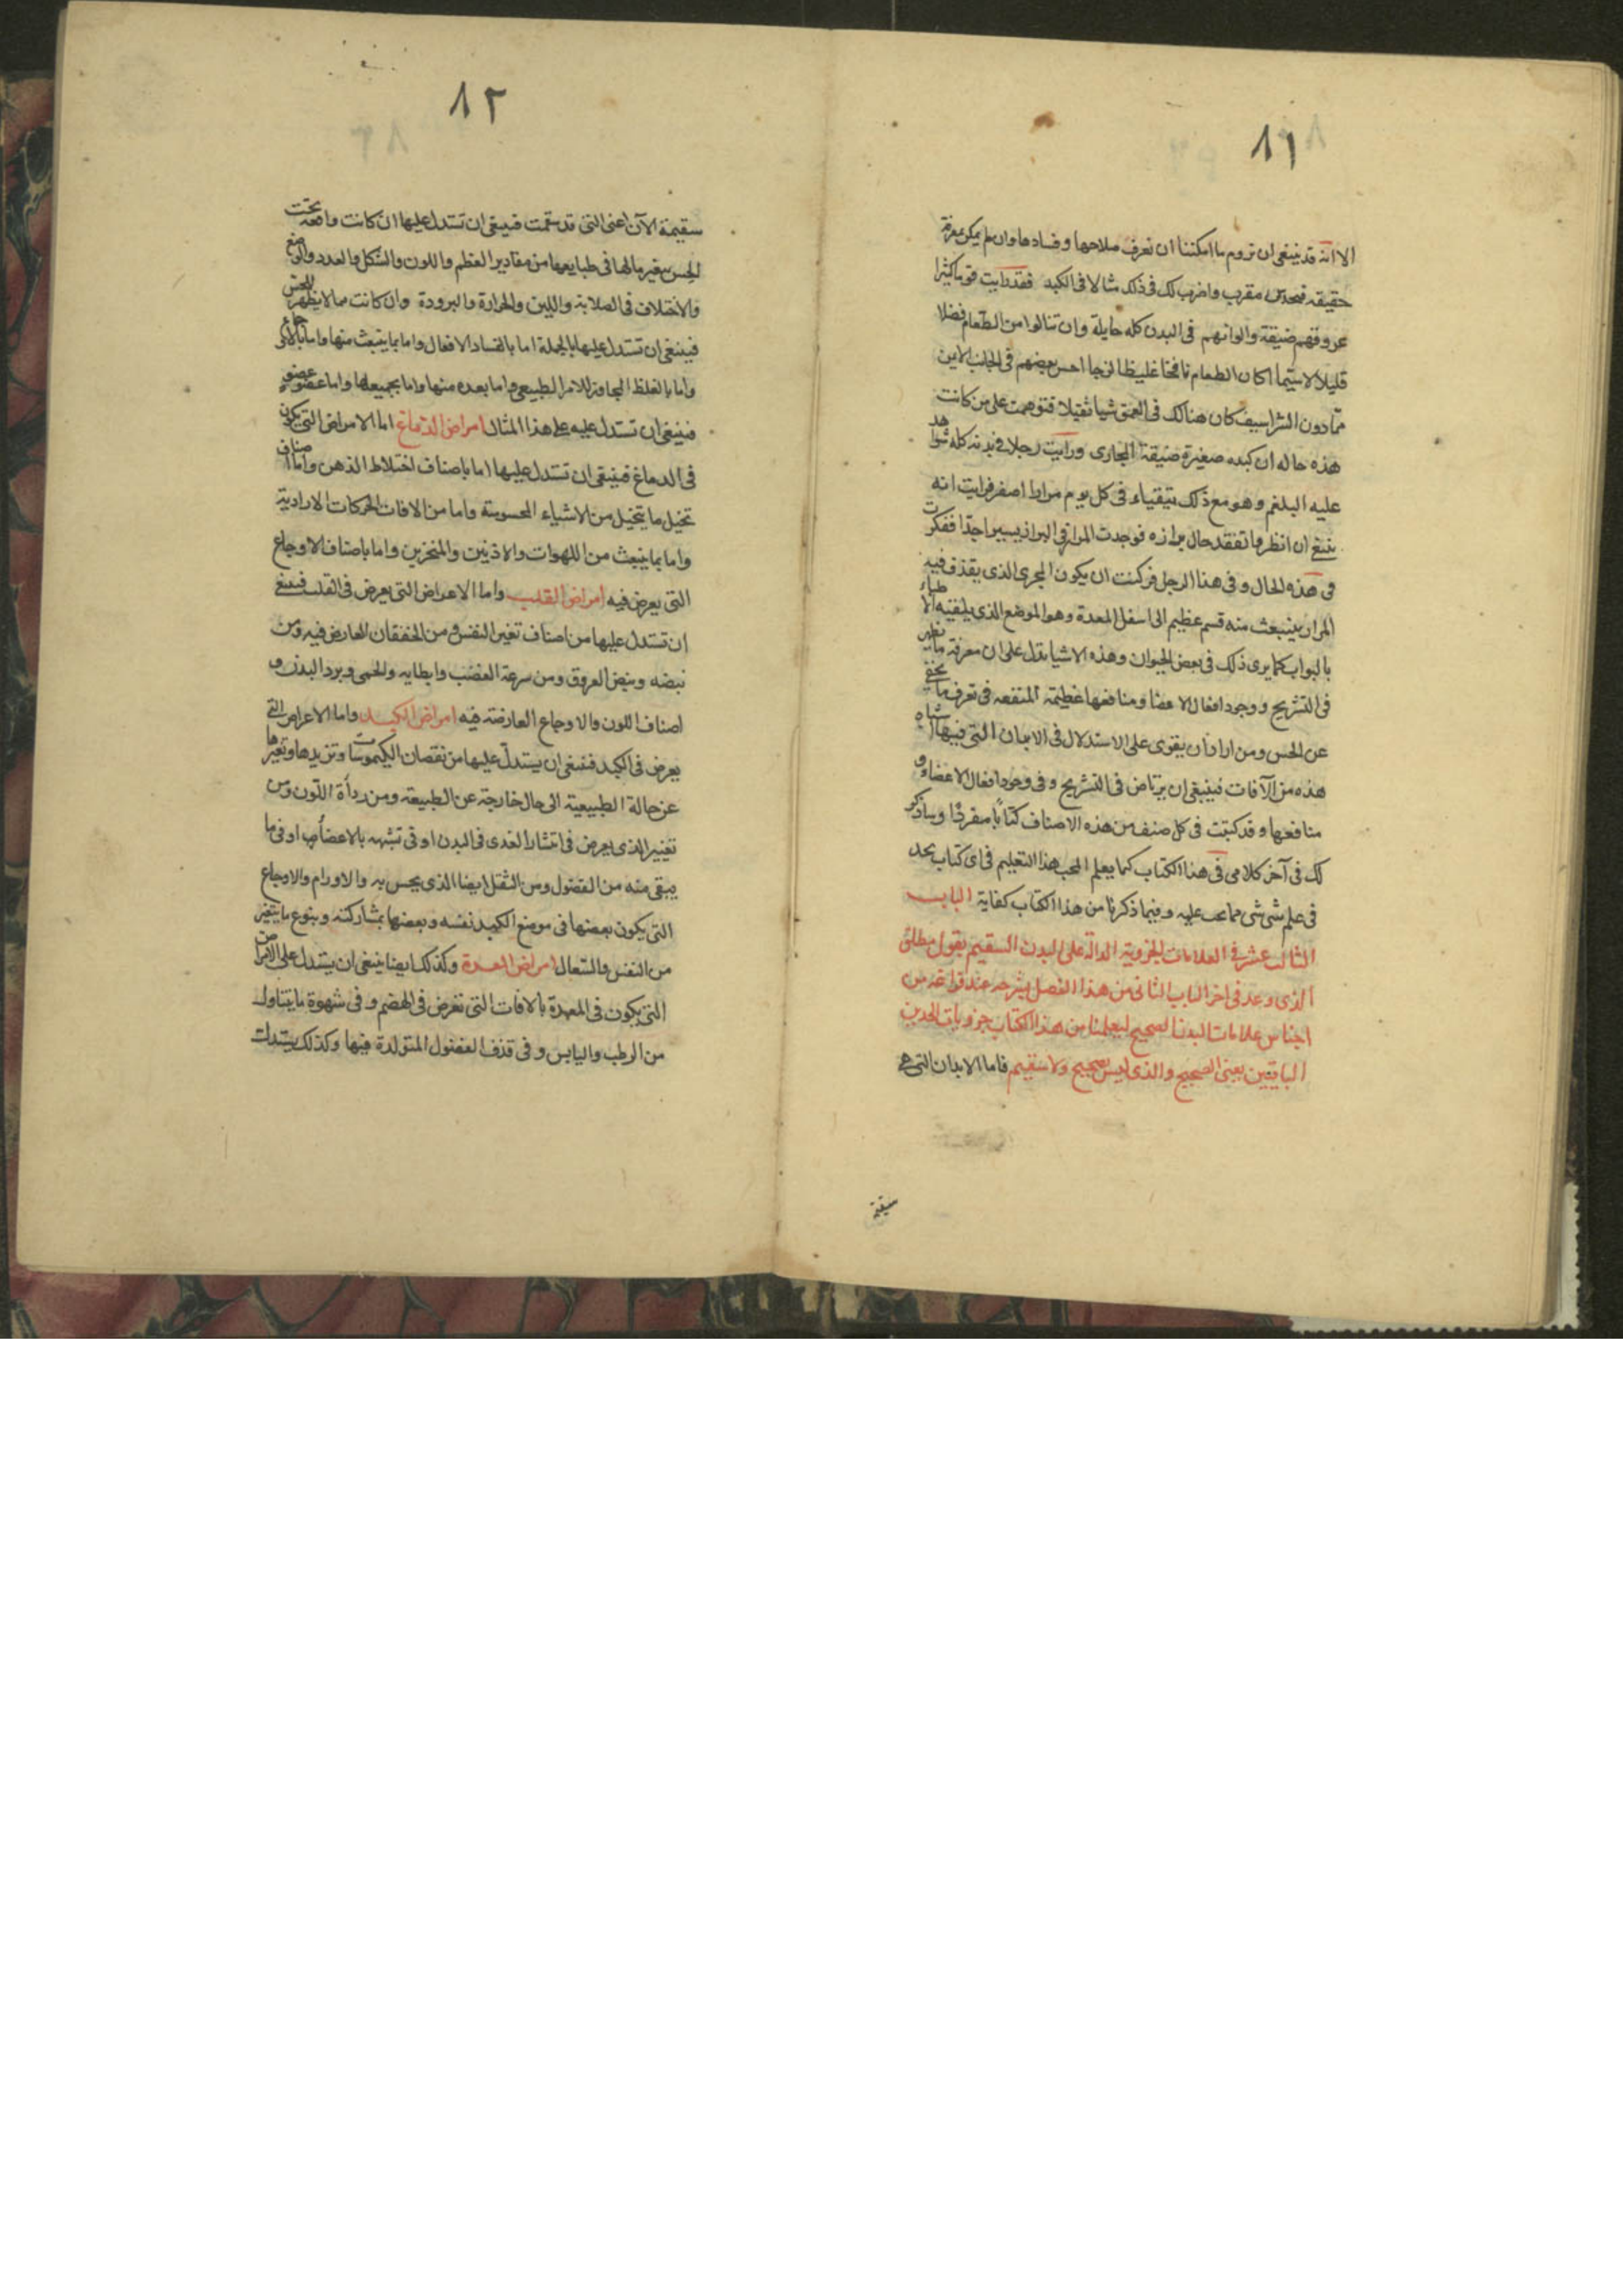 ٨١
الا انه قد ينبغى ان نروم ما امكننا ان نعرف صلاحها وفسادها وان لم يمكن بمعرفة
حقيقه فبحدس مقرب واضرب لك فى ذلك مثالا فى الكبد فقد رايت قوما كثيرا
عروقهم ضيقة والوانهم فى البدن كله حايلة وان تنالوا من الطعام فضلا
قليلا لاسيما اكان الطعام نافخا غليظا لزجا احس بعضهم فى الجانب الايمن
مما دون الشراسيف كان هنالك فى العمق شيا ثقيلا فتوهمت على من كانت
هذه حاله ان كبده صغيرة ضيقة المجارى ورايت رجلا فى بدنه كله شواهد
عليه البلغم وهو مع ذلك يتقياء فى كل يوم مرارا اصفر فرايت انه
ينبغى ان انظر واتفقد حال برازه فوجدت المرار فى البراز يسيرا جدا ففكرت
فى هذه الحال وفى هذا الرجل فركنت ان يكون المجرى الذى يقذف فيه
المرار ينبعث منه قسم عظيم الى اسفل المعدة وهو الموضع الذى يلقبه الاطباء
بالبواب كما يرى ذلك فى بعض الحيوان وهذه الاشيا تدل على ان معرفة ما يظهر
فى التشريح ووجود افعال الاعضا ومنافعها عظيمة المنفعه فى تعرف ما يخفى
عن الحس ومن اراد ان يقوى على الاستدلال فى الابدان التى فيها اشباه
هذه من الآفات فينبغى ان يرتاض فى التشريح وفى وجود افعال الاعضا و
منافعها وقد كتبت فى كل صنف من هذه الاصناف كتابا مفردا وساذكر
لك فى آخر كلامى فى هذا الكتاب كما يعلم المحب هذا التعليم فى اى كتاب يجد
فى علم شى شى مما يجب عليه وفيما ذكرنا من هذا الكتاب كفاية الباب
الثالث عشر فى العلامات الجزوية الدالة على البدن السقيم يقول مطلق
الذى وعد فى اخر الباب الثانى من هذا الفصل بشرحه عند فراغه من
اجناس علامات البدن الصحيح ليعلمنا من هذا الكتاب جزويات الحدين
الباقيين يعنى الصحيح والذى ليس بصحيح ولا سقيم فاما الابدان التى هى
سقيمة
٨٢
سقيمة الآن اعنى التى قد سقمت فينبغى ان تستدل عليها ان كانت واقعه تحت
الحس بتغير مالها فى طبايعها من مقادير العظم واللون والشكل والعدد والوضع
والاختلاف فى الصلابة واللين والحرارة والبرودة وان كانت مما لا يظهر للحس
فينبغى ان تستدل عليها بالجملة اما بالفساد الافعال واما بما ينبعث منها واما بالاوجاع
واما بالغلظ المجاوز للامر الطبيعى واما بعده منها واما بجميعها واما عضو عضو
فينبغى ان تستدل عليه على هذا المثال امراض الدماغ اما الامراض التى يكون
فى الدماغ فينبغى ان تستدل عليها اما باصناف اختلاط الذهن واما اصناف
تخيل ما يتخيل من الاشياء المحسوسة واما من الافات الحركات الارادية
واما بما ينبعث من اللهوات والاذنين والمنخرين واما باصناف الاوجاع
التى يعرض فيه امراض القلب واما الاعراض التى يعرض فى القلب فينبغى
ان تستدل عليها من اصناف تغير النفس ومن الخفقان العارض فيه ومن
نبضه ونبض العروق ومن سرعة الغضب وابطايه والحمى وبرد البدن و
اصناف اللون والاوجاع العارضة فيه امراض الكبد واما الاعراض التى
يعرض فى الكبد فينبغى ان يستدل عليها من نقصان الكيموسات وتزيدها وتغيرها
عن حالة الطبيعية الى حال خارجة عن الطبيعة ومن رداة اللون ومن
تغيير الذى يعرض فى انتشار الغدى فى البدن او فى تشبهه بالاعضا او فى ما
يبقى منه من الفضول ومن الثقل ايضا الذى يحس به والاورام والاوجاع
التى يكون بعضها فى موضع الكبد نفسه وبعضها بمشاركته وبنوع ما يتغير
من النفس والسعال امراض المعدة وكذلك ايضا ينبغى ان يستدل على الامراض
التى يكون فى المعدة بالافات التى تعرض فى الهضم وفى شهوة ما يتناول
من الرطب واليابس وفى قذف الفضول المتولدة فيها وكذلك يستدل